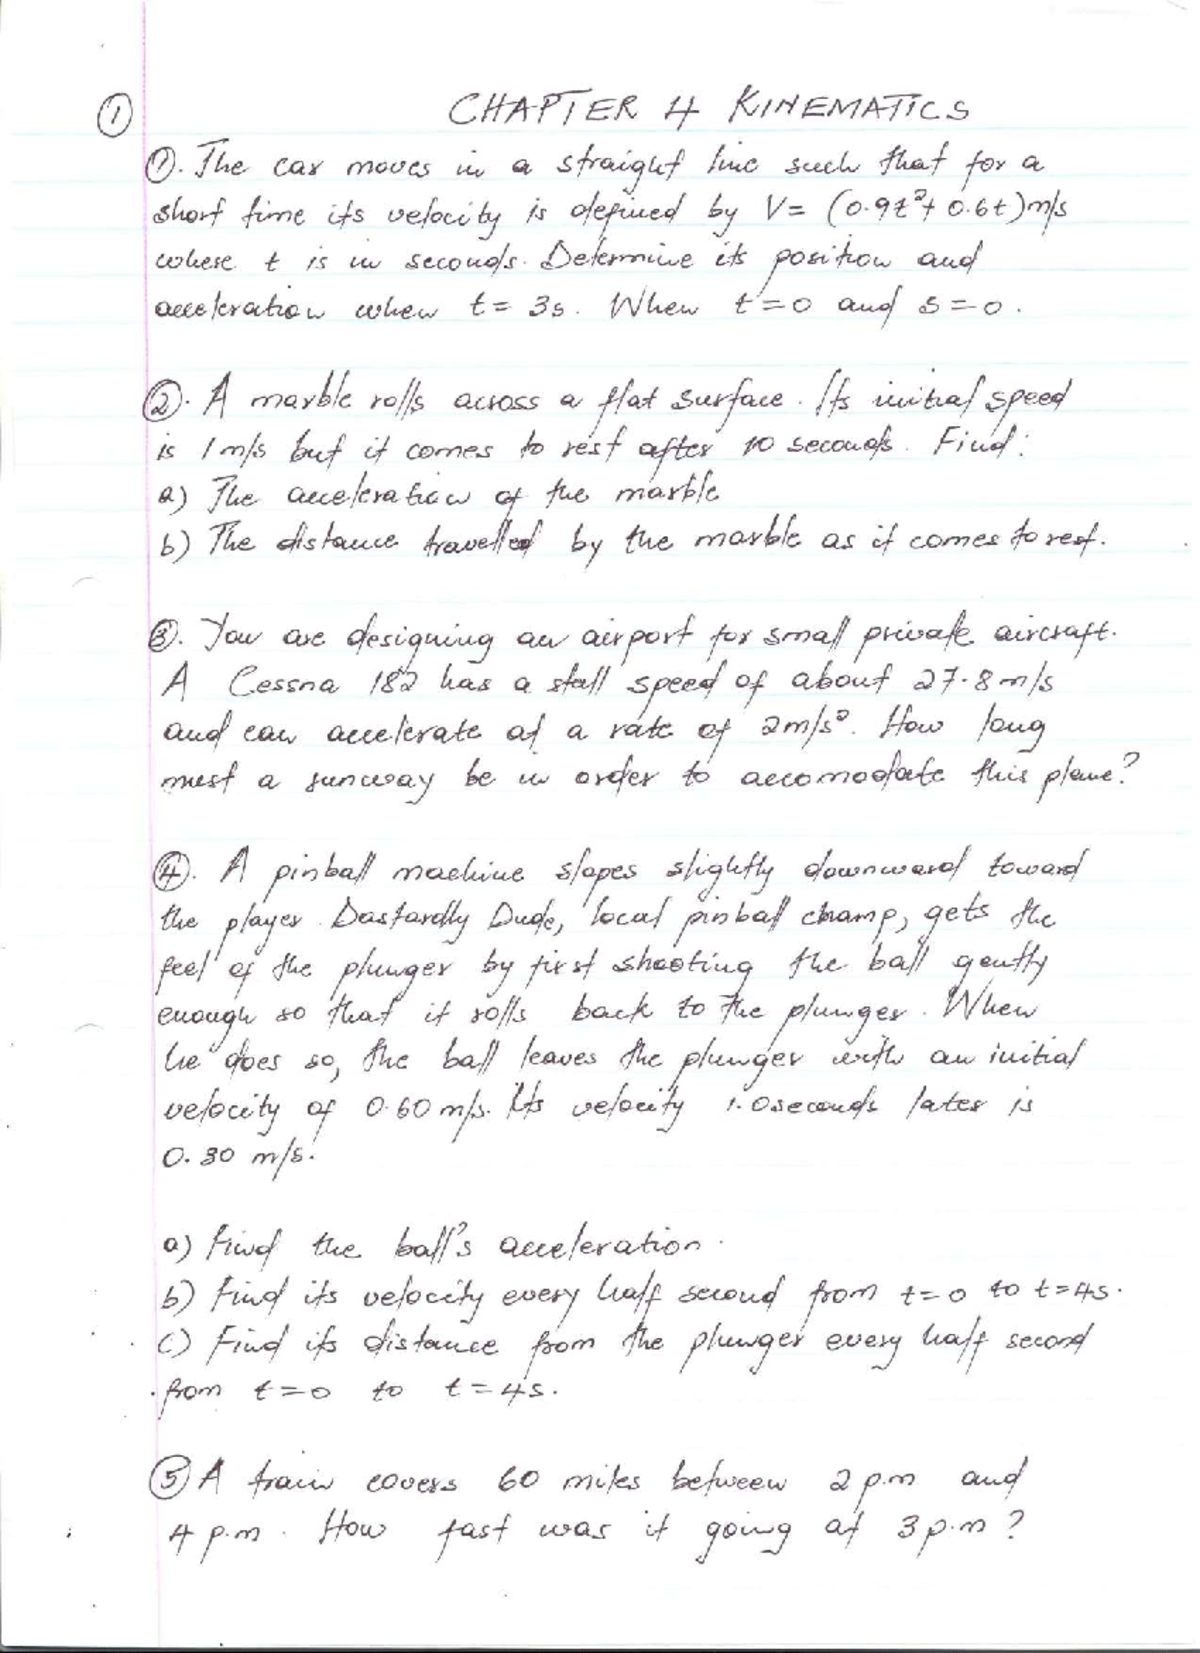 ① CHAPTER 4 KINEMATICS
①. The car moves in a straight line such that for a
short time its velocity is defined by V= (0.9t²+ 0.6t)m/s
where t is in seconds. Determine its position and
acceleration when t= 3s. When t=0 and s=0.
②. A marble rolls across a flat surface. Its initial speed
is 1m/s but it comes to rest after 10 seconds. Find:
a) The acceleration of the marble
b) The distance travelled by the marble as it comes to rest.
③. You are designing an airport for small private aircraft.
A Cessna 182 has a stall speed of about 27.8m/s
and can accelerate at a rate of 2m/s². How long
must a runway be in order to accomodate this plane?
④. A pinball machine slopes slightly downward toward
the player. Dastardly Dude, local pinball champ, gets the
feel of the plunger by first shooting the ball gently
enough so that it rolls back to the plunger. When
he does so, the ball leaves the plunger with an initial
velocity of 0.60 m/s. Its velocity 1.0seconds later is
0.30 m/s.
a) Find the ball's acceleration.
b) Find its velocity every half second from t=0 to t=4s.
c) Find its distance from the plunger every half second
from t=0 to t=4s.
⑤ A train covers 60 miles between 2 p.m and
4 p.m. How fast was it going at 3 p.m?